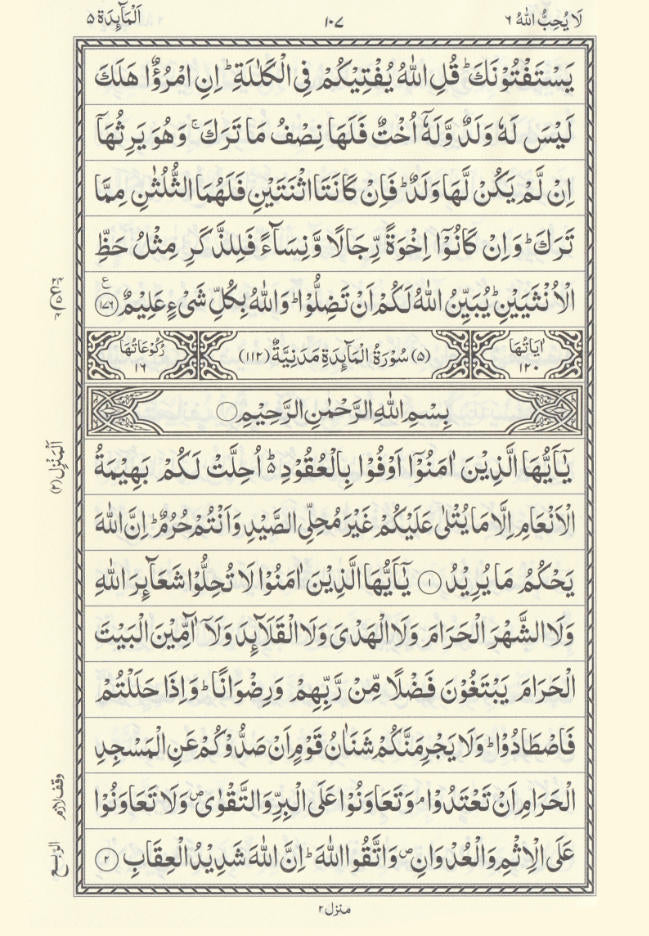 لَا یُحِبُّ اللهُ ۶
۱۰۷
اَلْمَآئِدَة ۵
یَسْتَفْتُوْنَكَ ؕ قُلِ اللهُ یُفْتِیْكُمْ فِی الْكَلٰلَةِ ؕ اِنِ امْرُؤٌا هَلَكَ
لَیْسَ لَهٗ وَلَدٌ وَّلَهٗۤ اُخْتٌ فَلَهَا نِصْفُ مَا تَرَكَ ۚ وَهُوَ یَرِثُهَاۤ
اِنْ لَّمْ یَكُنْ لَّهَا وَلَدٌ ؕ فَاِنْ كَانَتَا اثْنَتَیْنِ فَلَهُمَا الثُّلُثٰنِ مِمَّا
تَرَكَ ؕ وَاِنْ كَانُوْۤا اِخْوَةً رِّجَالًا وَّنِسَآءً فَلِلذَّكَرِ مِثْلُ حَظِّ
الْاُنْثَیَیْنِ ؕ یُبَیِّنُ اللهُ لَكُمْ اَنْ تَضِلُّوْا ؕ وَاللهُ بِكُلِّ شَیْءٍ عَلِیْمٌ ﴿۱۷۶﴾ ع
اٰیَاتُهَا ۱۲۰
(۵) سُوْرَةُ الْمَآئِدَةِ مَدَنِیَّةٌ (۱۱۲)
رُكُوْعَاتُهَا ۱۶
بِسْمِ اللهِ الرَّحْمٰنِ الرَّحِیْمِ
یٰۤاَیُّهَا الَّذِیْنَ اٰمَنُوْۤا اَوْفُوْا بِالْعُقُوْدِ ؕ۬ اُحِلَّتْ لَكُمْ بَهِیْمَةُ
الْاَنْعَامِ اِلَّا مَا یُتْلٰی عَلَیْكُمْ غَیْرَ مُحِلِّی الصَّیْدِ وَاَنْتُمْ حُرُمٌ ؕ اِنَّ اللهَ
یَحْكُمُ مَا یُرِیْدُ ﴿۱﴾ یٰۤاَیُّهَا الَّذِیْنَ اٰمَنُوْا لَا تُحِلُّوْا شَعَآئِرَ اللهِ
وَلَا الشَّهْرَ الْحَرَامَ وَلَا الْهَدْیَ وَلَا الْقَلَآئِدَ وَلَاۤ آٰمِّیْنَ الْبَیْتَ
الْحَرَامَ یَبْتَغُوْنَ فَضْلًا مِّنْ رَّبِّهِمْ وَرِضْوَانًا ؕ وَاِذَا حَلَلْتُمْ
فَاصْطَادُوْا ؕ وَلَا یَجْرِمَنَّكُمْ شَنَاٰنُ قَوْمٍ اَنْ صَدُّوْكُمْ عَنِ الْمَسْجِدِ
الْحَرَامِ اَنْ تَعْتَدُوْا ۘ وَتَعَاوَنُوْا عَلَی الْبِرِّ وَالتَّقْوٰی ۪ وَلَا تَعَاوَنُوْا
عَلَی الْاِثْمِ وَالْعُدْوَانِ ۪ وَاتَّقُوا اللهَ ؕ اِنَّ اللهَ شَدِیْدُ الْعِقَابِ ﴿۲﴾
اَلْمَنْزِل (۲)
وقف لازم
الرّبع
منزل ۲